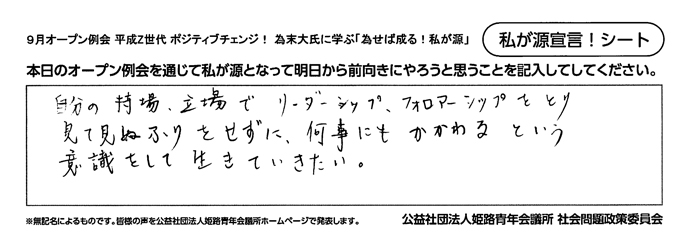 9月オープン例会 平成Z世代 ポジティブチェンジ！ 為末大氏に学ぶ「為せば成る！私が源」
私が源宣言！シート
本日のオープン例会を通じて私が源となって明日から前向きにやろうと思うことを記入してしてください。
自分の持場、立場でリーダーシップ、フォロアーシップをとり
見て見ぬふりをせずに、何事にもかかわるという
意識をして生きていきたい。
※無記名によるものです。皆様の声を公益社団法人姫路青年会議所ホームページで発表します。
公益社団法人姫路青年会議所 社会問題政策委員会